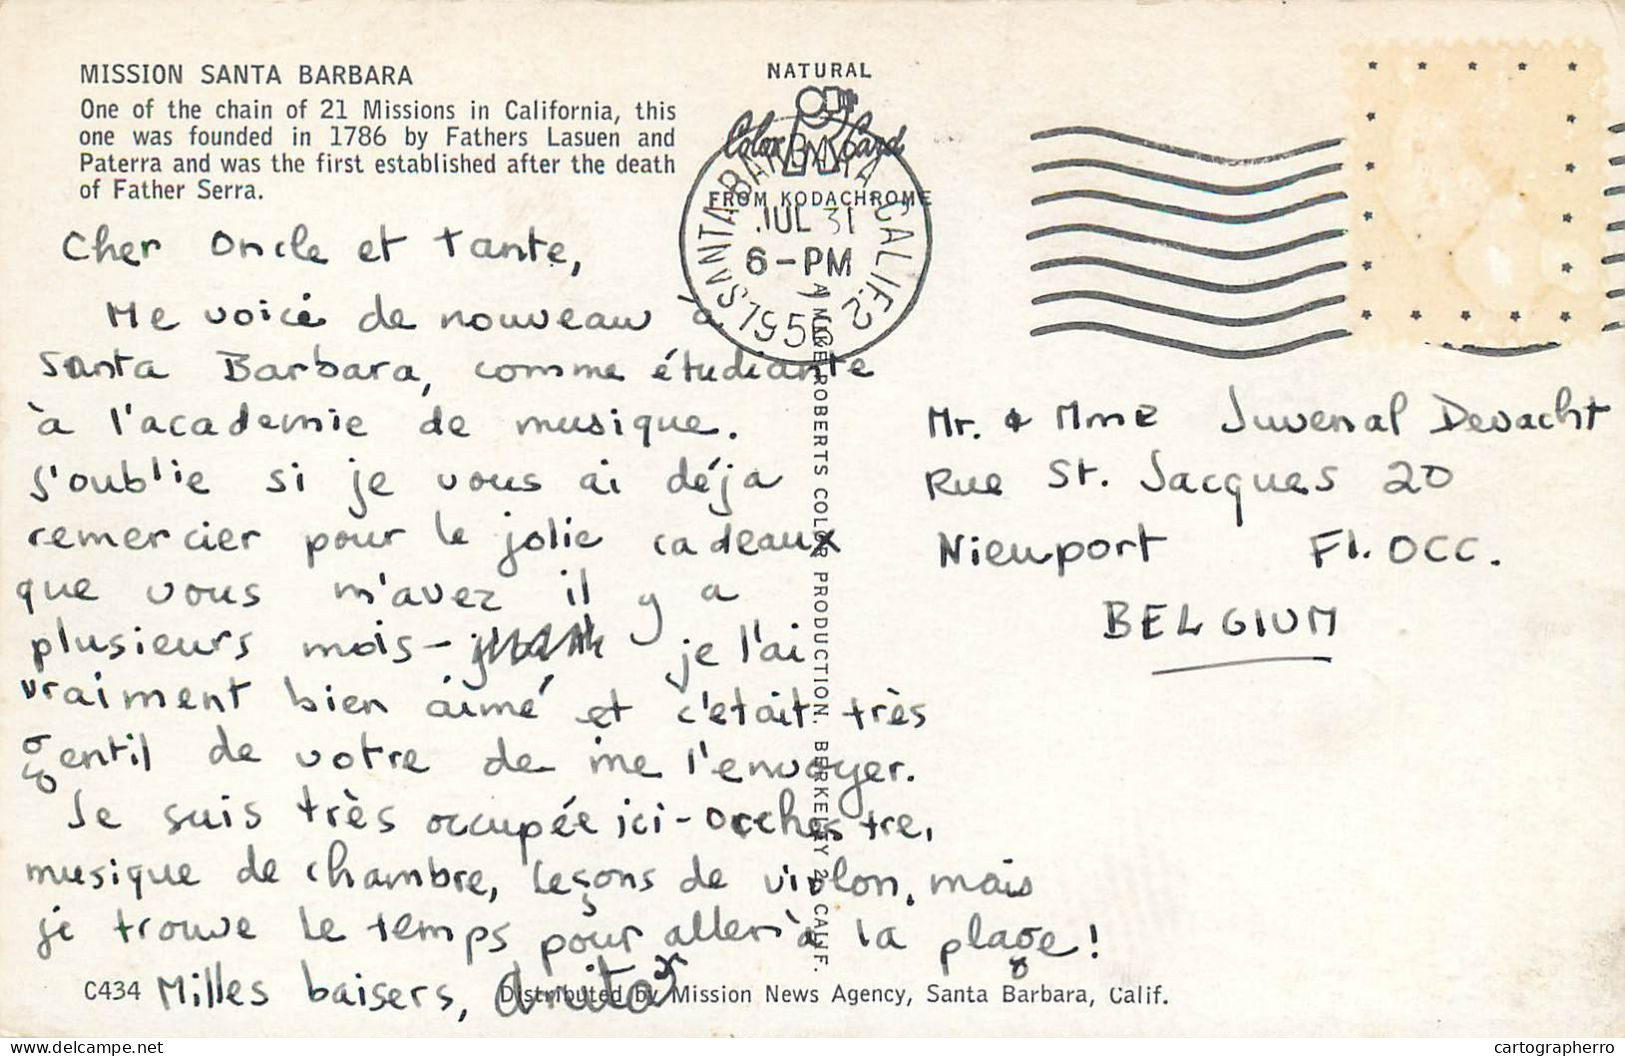 MISSION SANTA BARBARA
One of the chain of 21 Missions in California, this
one was founded in 1786 by Fathers Lasuen and
Paterra and was the first established after the death
of Father Serra.
NATURAL
Color Card
FROM KODACHROME
SANTA BARBARA CALIF. 2
JUL 31
6-PM
195
A MIKE ROBERTS COLOR PRODUCTION. BERKELEY 2, CALIF.
Cher Oncle et Tante,
Me voici de nouveau à
Santa Barbara, comme étudiante
à l'académie de musique.
J'oublie si je vous ai déja
remercier pour le jolie cadeaux
que vous m'avez il y a
plusieurs mois - je l'ai
vraiment bien aimé et c'etait très
gentil de votre de me l'envoyer.
Je suis très occupée ici - Orchestre,
musique de chambre, leçons de violon, mais
je trouve le temps pour aller à la plage!
Milles baisers, Anita
Mr. & Mme Juvenal Devacht
Rue St. Jacques 20
Nieuport Fl. OCC.
BELGIUM
C434
Distributed by Mission News Agency, Santa Barbara, Calif.
www.delcampe.net
cartographerro